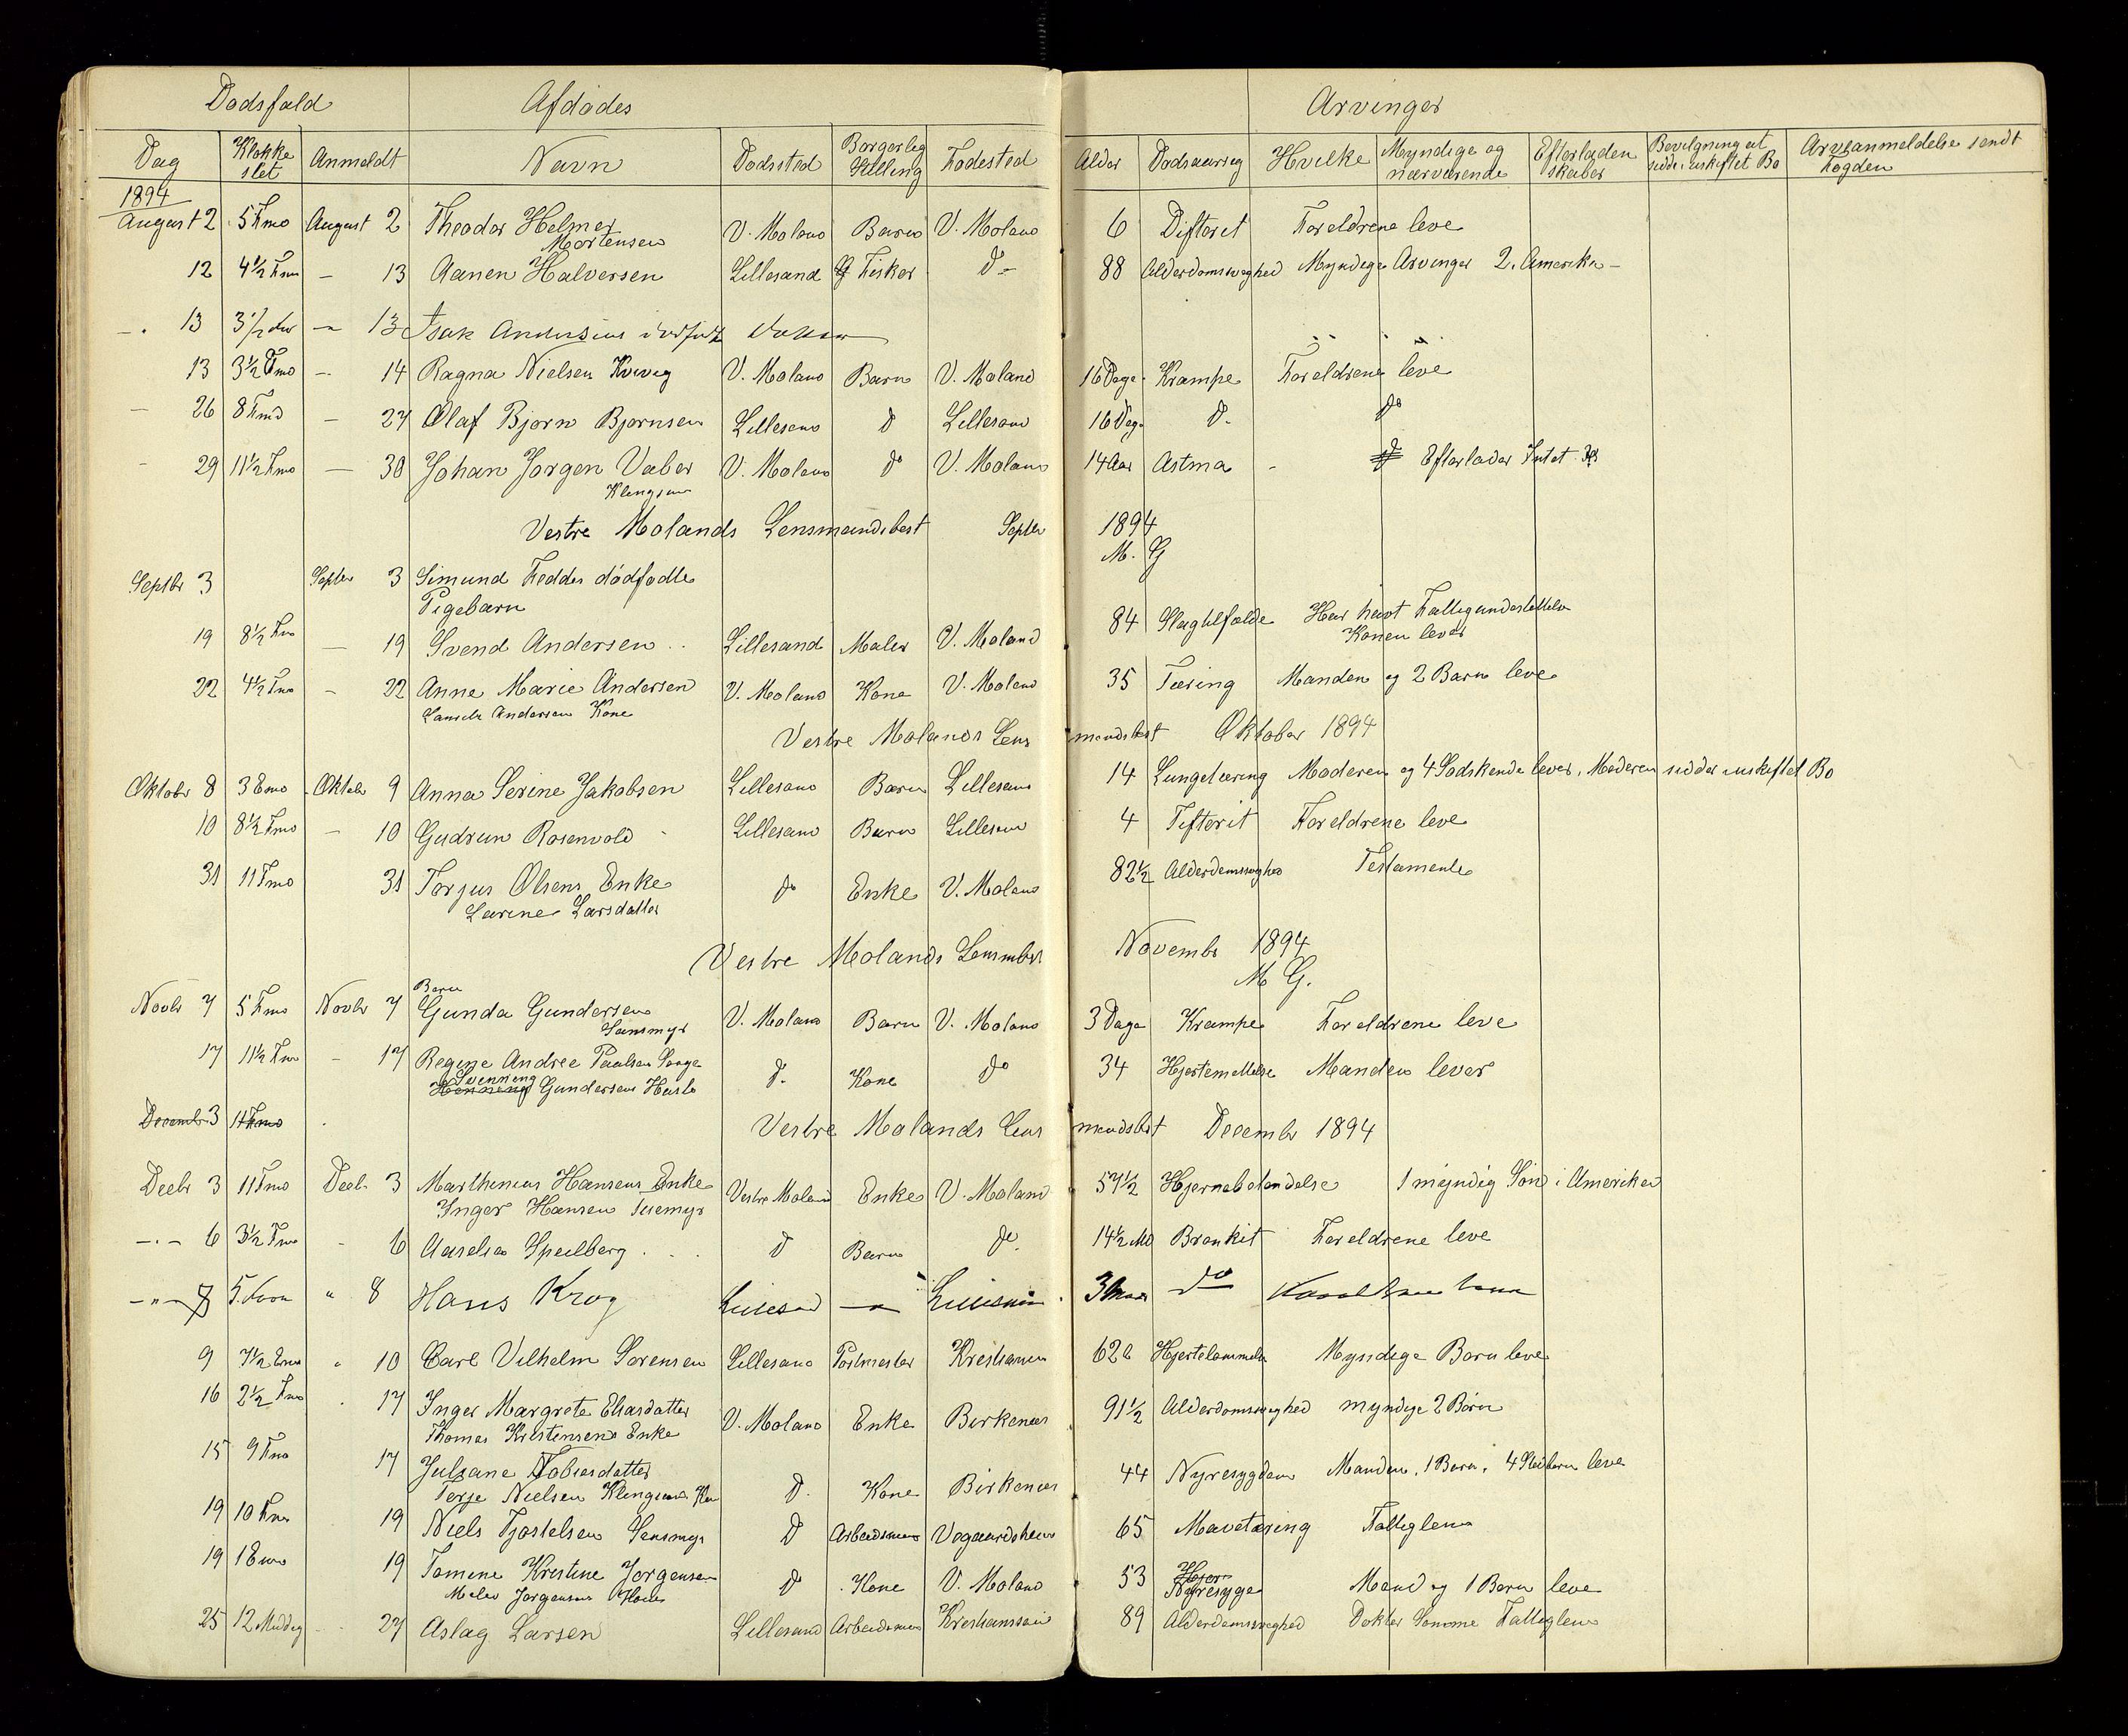 Dødsfald Afdødes Arvinger
Dag Klokke slet Anmeldt Navn Dødssted Borgerlig Stilling Fødested Alder Dødsaarsag Hvilke Myndige og nærværende Efterladenskaber Bevilgning at sidde i uskiftet Bo Arveanmeldelse sendt Fogden
1894
August 2 5 Fmd August 2 Theodor Helmer V. Moland Barn V. Moland 6 Difterit Foreldrene leve
Mortensen
12 4½ Fmd — 13 Aanen Halvorsen Lillesand Fisker do 88 Alderdomssvaghed Myndige Arvinger 2. Amerika —
13 3½ — 13 Isak Andersens dødfødte
13 3½ Fmd — 14 Ragna Nielsen Kvivig V. Moland Barn V. Moland 16 Dage Krampe Foreldrene leve
— 26 8 Fmd — 27 Olaf Bjørn Bjørnsen Lillesand do Lillesand 16 Dage do do
29 11½ Fmd — 30 Johan Jørgen Valber V. Moland do V. Moland 14 Aar Astma - Efterlader Intet
Vestre Molands Lensmandsbest Septbr 1894
M. G
Septbr 3 Septbr 3 Simund Fedder dødfødte
Pigebarn
19 8½ Fmd — 19 Svend Andersen Lillesand Maler V. Moland 84 Slagtilfælde Har havt Fattigunderstøttelse
Konen lever
22 4½ Fmd — 22 Anne Marie Andersen V. Moland Kone V. Moland 35 Tæring Manden og 2 Barn leve
Andersen Kone
Vestre Molands Lensmandsbest Oktober 1894
Oktobr 8 3 Emd Oktobr 9 Anna Serine Jakobsen Lillesand Barn Lillesand 14 Lungetæring Moderen og 4 Sødskende lever, Moderen sidder uskiftet Bo
10 8½ Fmd — 10 Gudrun Rosenvold Lillesand Barn Lillesand 4 Tifterit Foreldrene leve
31 11 Fmd 31 Torjus Olsens Enke do Enke V. Moland 82½ Alderdomssvaghed Testamente
Larine Larsdatter
Vestre Molands Lensmbst Novembr 1894
M G.
Barn
Novbr 7 5 Fmd Novbr 7 Gunda Gundersen V. Moland Barn V. Moland 3 Dage Krampe Foreldrene leve
17 11½ Fmd — 17 Regine Andree Paulsen do Kone do 34 Manden lever
Svenning
Henning Gundersens
Decembr 3 11 Fmd Vestre Molands Lensmandsbest Decembr 1894
Decbr 3 11 Fmd Decbr 3 Marthinius Hansens Enke Vestre Moland Enke V. Moland 57½ Hjernebetændelse 1 myndig Søn i Amerika
Inger Hansen
— 6 3½ Fmd 6 Aaselia Speilberg do Barn do 14½ Md Bronkit Foreldrene leve
— 8 Hans Krog Lillesand — Lillesand do
9 7½ Emd 10 Carl Vilhelm Sørensen Lillesand Postmester Kristiania 62 Myndige Børn leve
16 2½ Fmd 17 Inger Margrete Eliasdatter V. Moland Enke Birkenes 91½ Alderdomssvaghed myndige 2 Børn
Thomas Kristensens Enke
15 9 Fmd 17 Juliane Tobiasdatter do Kone Birkenes 44 Nyresygdom Manden, 1 Barn, 4 Stedbørn leve
Terje Nielsen
19 10 Fmd 19 Niels Tjøstelsen do Arbeidsmand Vegaardsheien 65 Mavetæring Fattiglem
19 1 Emd 19 Tomine Kristine Jørgensen do Kone V. Moland 53 Hjer Mand og 1 Barn leve
Nyresyge
Maler Jørgensens Kone
25 12 Middag 27 Aslag Larsen Lillesand Arbeidsmand Kristianssand 89 Alderdomssvaghed Dokter Sømme Fattiglem